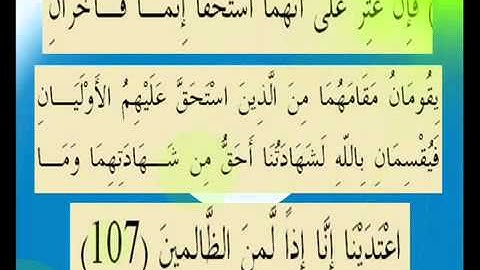 ) فَإِنْ عُثِرَ عَلَى أَنَّهُمَا اسْتَحَقَّا إِثْمًا فَآخَرَانِ
يِقُومَانُ مَقَامَهُمَا مِنَ الَّذِينَ اسْتَحَقَّ عَلَيْهِمُ الأَوْلَيَانِ
فَيُقْسِمَانِ بِاللّهِ لَشَهَادَتُنَا أَحَقُّ مِن شَهَادَتِهِمَا وَمَا
اعْتَدَيْنَا إِنَّا إِذًا لَّمِنَ الظَّالِمِينَ (107)